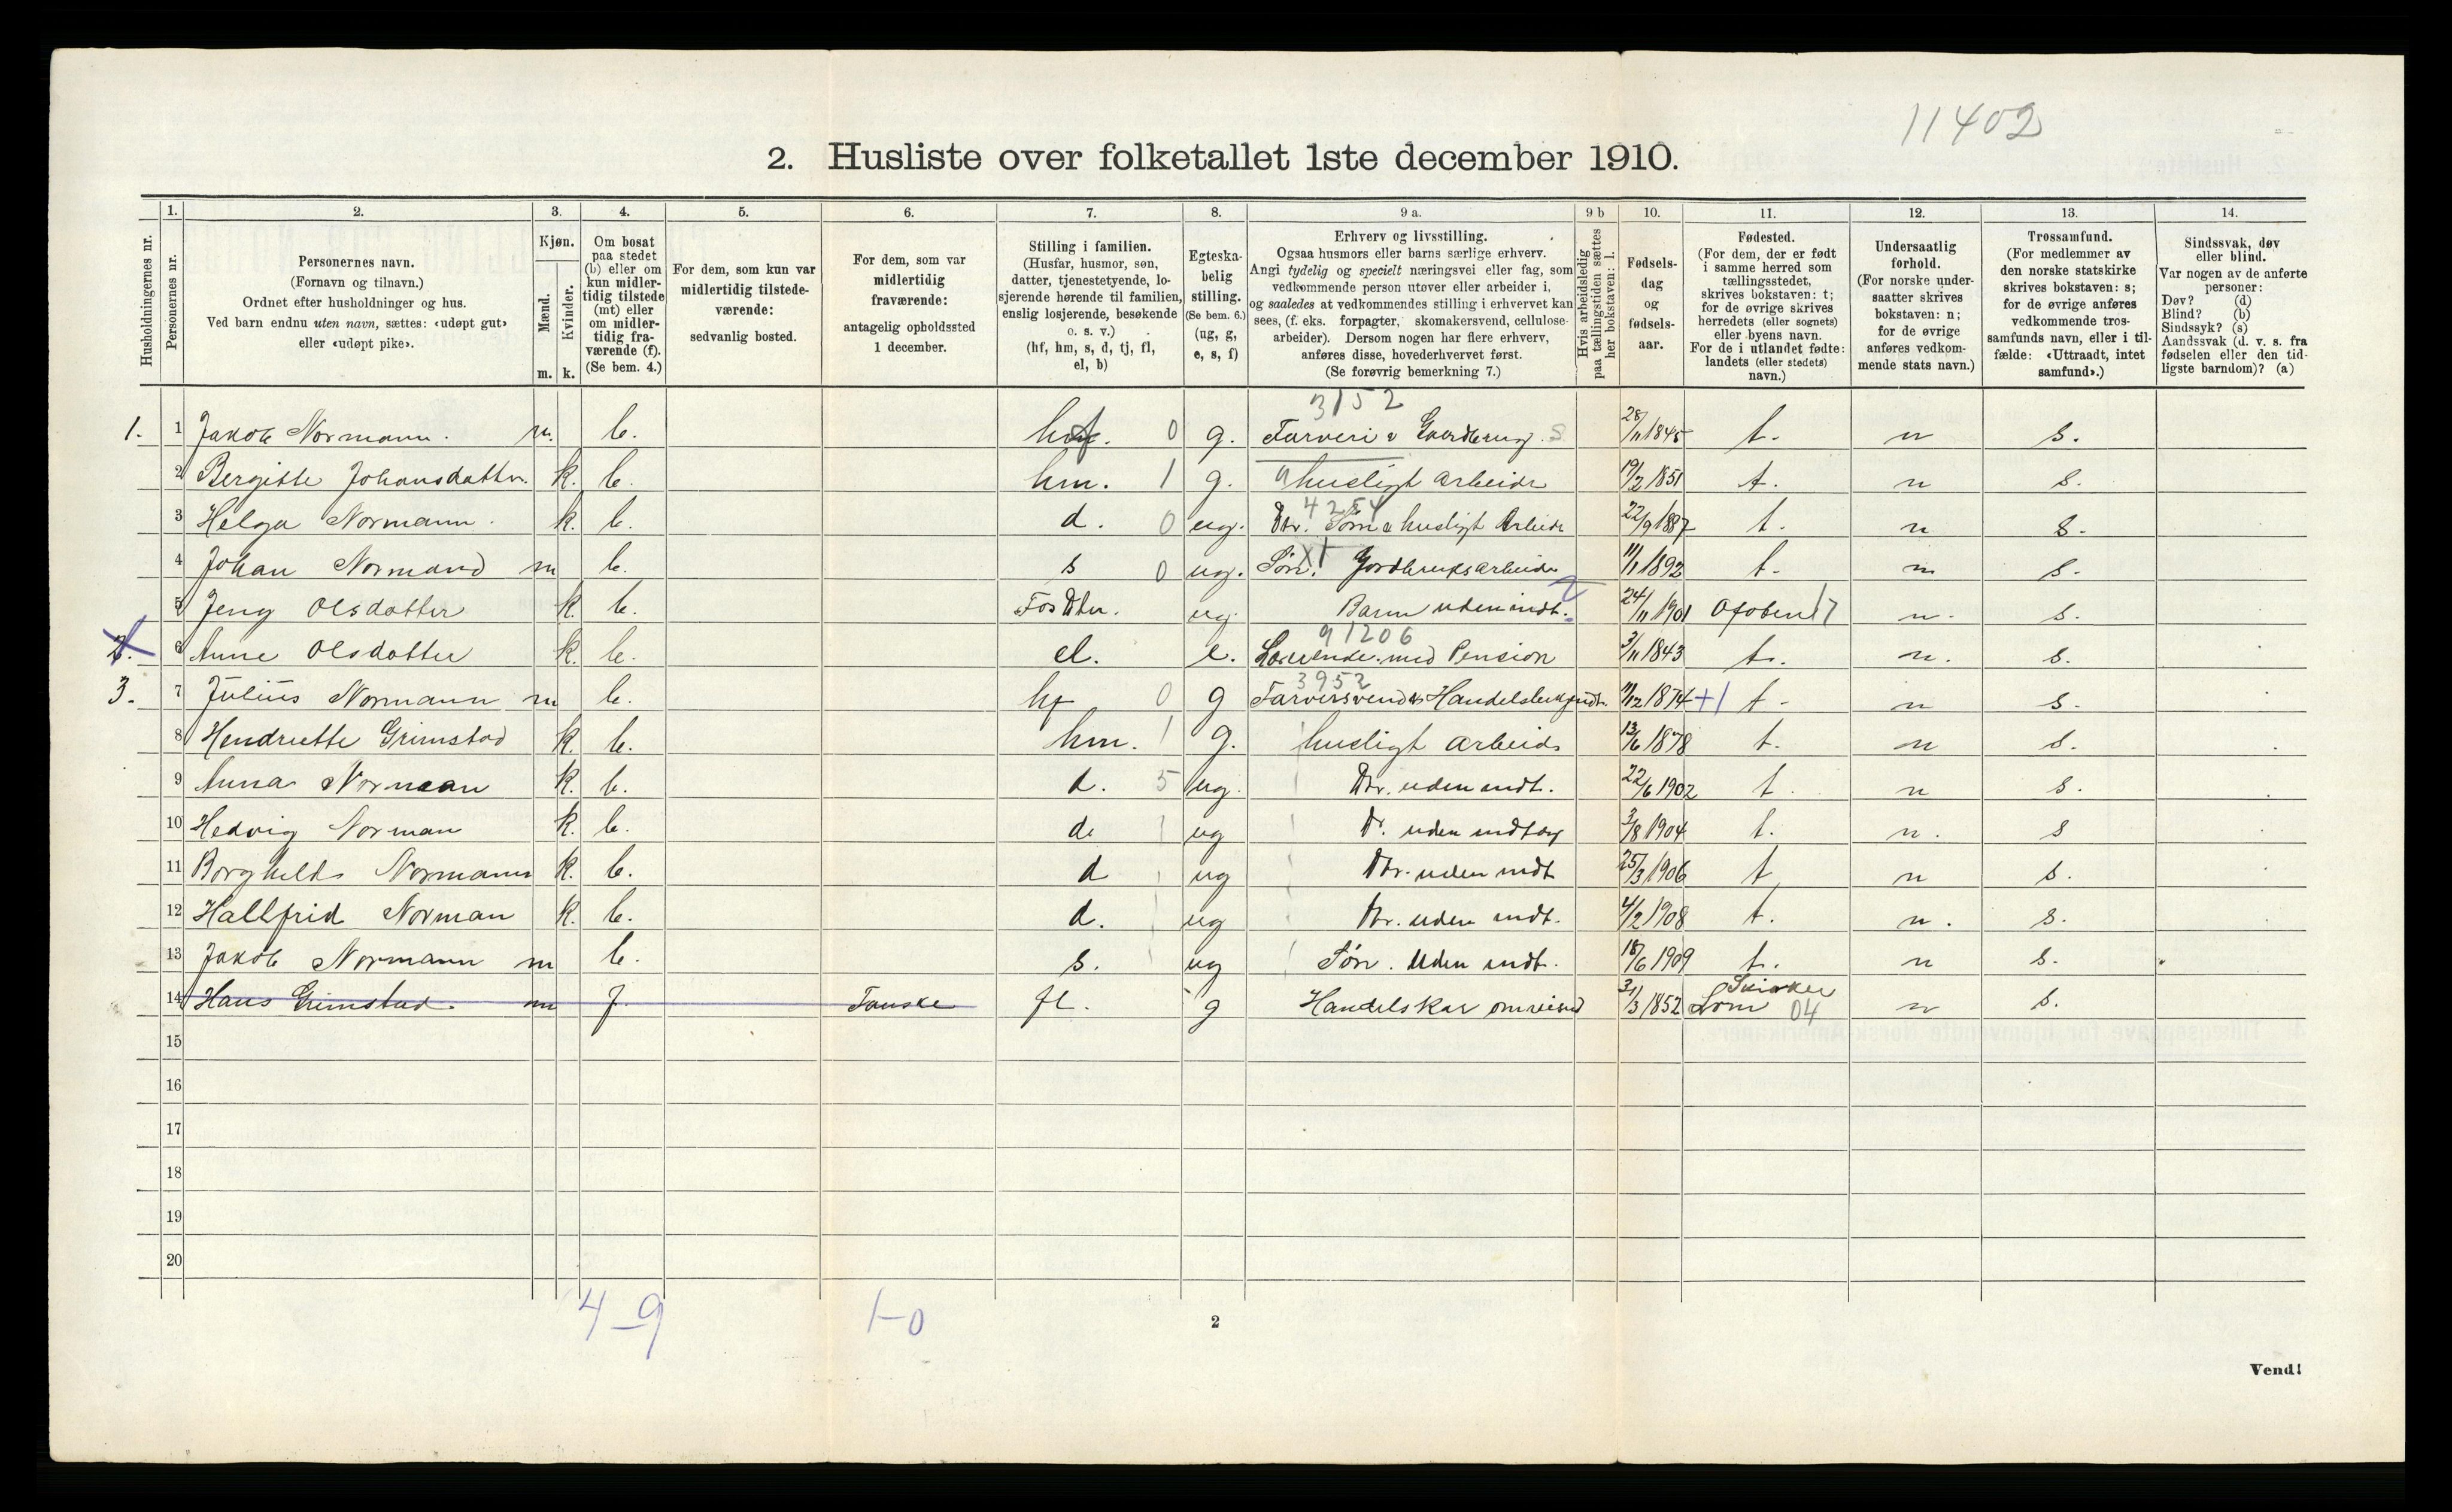 11402
2. Husliste over folketallet 1ste december 1910.
Husholdningernes nr.
1. Personernes nr.
2. Personernes navn.
(Fornavn og tilnavn.)
Ordnet efter husholdninger og hus.
Ved barn endnu uten navn, sættes: «udøpt gut»
eller «udøpt pike».
3. Kjøn.
Mænd. m.
Kvinder. k.
4. Om bosat
paa stedet
(b) eller om
kun midler-
tidig tilstede
(mt) eller
om midler-
tidig fra-
værende (f).
(Se bem. 4.)
5. For dem, som kun var
midlertidig tilstede-
værende:
sedvanlig bosted.
6. For dem, som var
midlertidig
fraværende:
antagelig opholdssted
1 december.
7. Stilling i familien.
(Husfar, husmor, søn,
datter, tjenestetyende, lo-
sjerende hørende til familien,
enslig losjerende, besøkende
o. s. v.)
(hf, hm, s, d, tj, fl,
el, b)
8. Egteska-
belig
stilling.
(Se bem. 6.)
(ug, g,
e, s, f)
9 a. Erhverv og livsstilling.
Ogsaa husmors eller barns særlige erhverv.
Angi tydelig og specielt næringsvei eller fag, som
vedkommende person utøver eller arbeider i,
og saaledes at vedkommendes stilling i erhvervet kan
sees, (f. eks. forpagter, skomakersvend, cellulose-
arbeider). Dersom nogen har flere erhverv,
anføres disse, hovederhvervet først.
(Se forøvrig bemerkning 7.)
9 b Hvis arbeidsledig
paa tællingstiden sættes
her bokstaven: l.
10. Fødsels-
dag
og
fødsels-
aar.
11. Fødested.
(For dem, der er født
i samme herred som
tællingsstedet,
skrives bokstaven: t;
for de øvrige skrives
herredets (eller sognets)
eller byens navn.
For de i utlandet fødte:
landets (eller stedets)
navn.)
12. Undersaatlig
forhold.
(For norske under-
saatter skrives
bokstaven: n;
for de øvrige
anføres vedkom-
mende stats navn.)
13. Trossamfund.
(For medlemmer av
den norske statskirke
skrives bokstaven: s;
for de øvrige anføres
vedkommende tros-
samfunds navn, eller i til-
fælde: «Uttraadt, intet
samfund».)
14. Sindssvak, døv
eller blind.
Var nogen av de anførte
personer:
Døv? (d)
Blind? (b)
Sindssyk? (s)
Aandssvak (d. v. s. fra
fødselen eller den tid-
ligste barndom)? (a)
3152
1. 1 Jakob Normann. m. b. hf. 0 g. Farveri & Gardbrug. S 28/11 1845 t. n s.
2 Bergitte Johansdatter. k. b. hm. 1 g. husligt arbeide 19/2 1851 t. n s.
4284
3 Helga Normann. k. b. d. 0 ug. Dtr. husligt Arbeide 22/9 1887 t. n s.
4 Johan Normand m b. s 0 ug. Søn. Gordbruksarbeide 11/1 1892 t. n s.
5 Jeny Olsdatter k. b. Fos Dtr. ug. Barn uden indt. 24/11 1901 Ofoten 17 n. s.
91206
2. 6 Anne Olsdatter k. b. el. e. Losierende med Pension 3/11 1843 t. n. s.
3952
3. 7 Julius Normann m b. hf 0 g Farversvend & Handelsbetjndt. 11/12 1874 +1 t. n s.
8 Hendrette Grimstad k. b. hm. 1 g. husligt arbeide 13/6 1878 t. n s.
9 Anna Norman k. b. d. 5 ug. Dtr. uden indt. 22/6 1902 t. n s.
10 Hedvig Norman k. b. d. ug Dr. uden indtæg 3/8 1904 t. n. s
11 Borghild Normann k. b. d ug Dtr. uden indt 25/3 1906 t n s.
12 Hallfrid Norman k. b. d. ug Dtr. uden indt. 4/2 1908 t. n. s.
13 Jakob Normann m b. s. ug Søn. Uden indt. 18/6 1909 t. n s.
14 Hans Grimstad m f. Fauske fl. g Handelskar omreisnd 31/3 1852 Skiaker Lom 04 n s.
15
16
17
18
19
20
4-9 1-0
2
Vend!